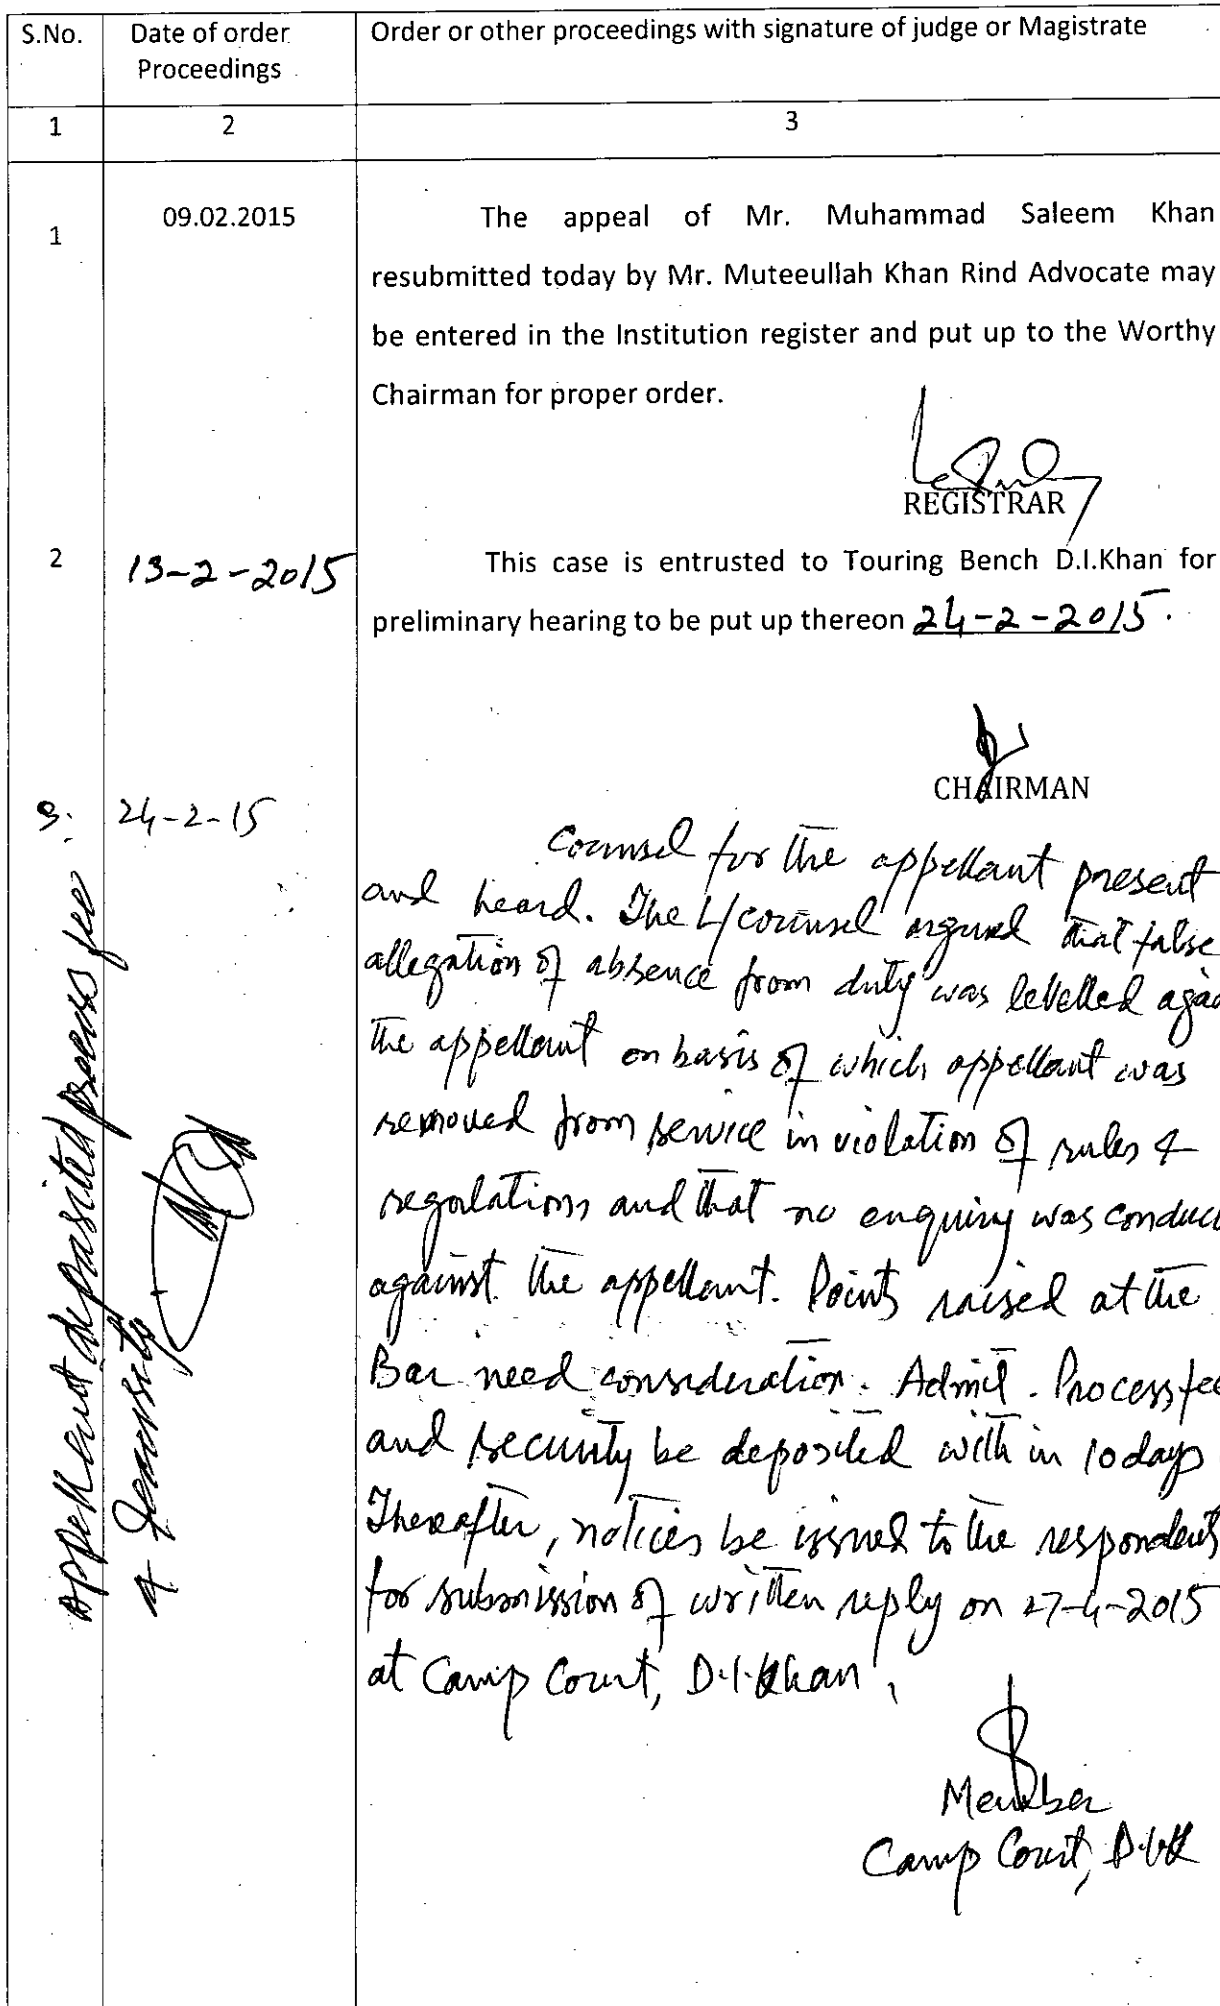 S.No.
Date of order
Proceedings
Order or other proceedings with signature of judge or Magistrate
1
2
3
1
09.02.2015
The appeal of Mr. Muhammad Saleem Khan
resubmitted today by Mr. Muteeullah Khan Rind Advocate may
be entered in the Institution register and put up to the Worthy
Chairman for proper order.
REGISTRAR
2
13-2-2015
This case is entrusted to Touring Bench D.I.Khan for
preliminary hearing to be put up thereon 24-2-2015.
CHAIRMAN
3.
24-2-15
Counsel for the appellant present
and heard. The L/counsel argued that false
allegation of absence from duty was levelled agai
the appellant on basis of which appellant was
removed from service in violation of rules &
regulations and that no enquiry was conduc
against the appellant. Points raised at the
Bar need consideration. Admit. Process fee
and security be deposited with in 10 days
Thereafter, notices be issued to the respondents
for submission of written reply on 27-4-2015
at Camp Court, D.I.Khan.
Member
Camp Court, D.I.K
Appellant deposited process fee
&